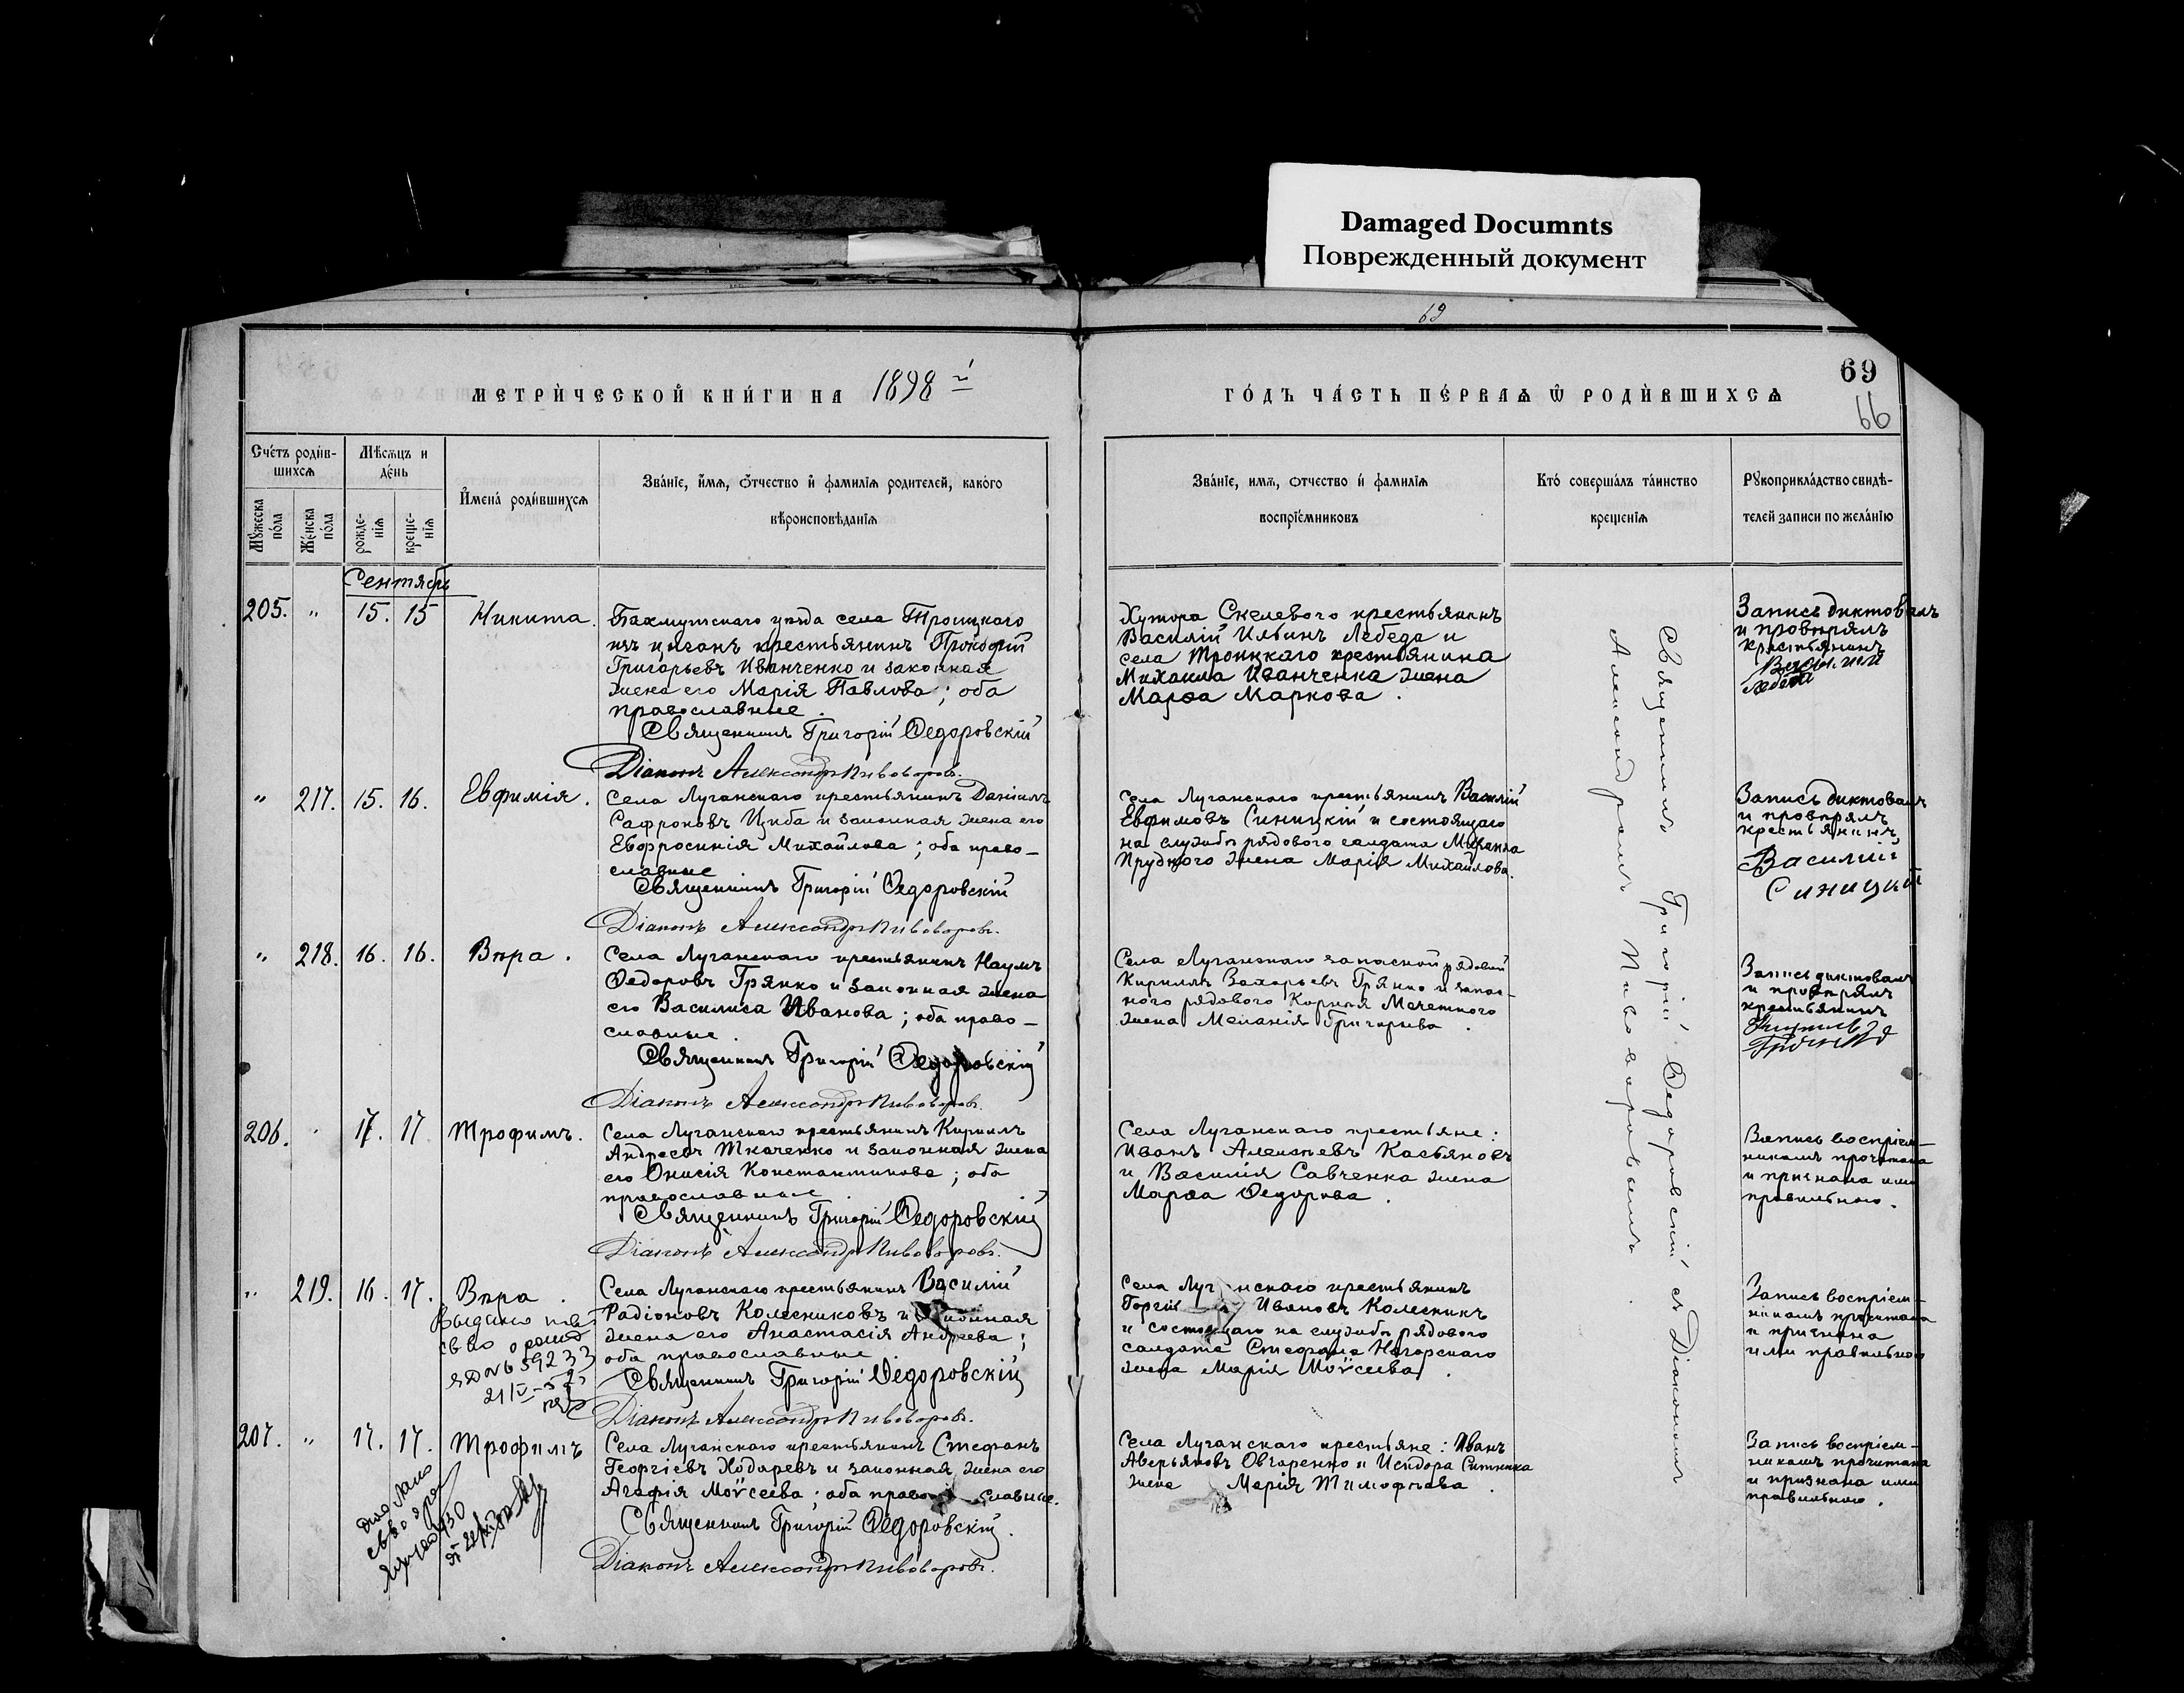 Damaged Documnts
Поврежденный документ
69
69
66
МЕТРИ́ЧЕСКОЙ КНИ́ГИ НА 1898 й
ГО́ДЪ ЧА́СТЬ ПЕ́РВАѦ Ѿ РОДИ́ВШИХСѦ
Сче́тъ роди́в-
шихсѧ
Мѣсѧцъ и
де́нь
Мꙋжеска
по́ла
Же́нска
по́ла
рожде-
нїѧ
креще-
нїѧ
И҆мена̀ роди́вшихсѧ
Зва́нїе, и҆мѧ, ѻ҆́тчество и҆ фамилїѧ родителей, како́го
вѣроисповѣ́данїѧ
Зва́нїе, имѧ, ѻтчество и҆ фамилїѧ
воспрїе́мниковъ
Кто́ соверша́лъ та́инство
креще́нїѧ
Рꙋкоприкла́дство свидѣ́-
телей записи по жела́нїю
Сентябрь
205. " 15. 15 Никита.
Бахмутскаго уѣзда села Троицкаго
изъ цыганъ крестьянинъ Прокофій
Григорьевъ Иванченко и законная
жена его Марія Павлова; оба
православные.
Священникъ Григорій Ѳедоровскій
Діаконъ Александръ Пивоваровъ.
Хутора Скелевого крестьянинъ
Василій Ильинъ Лебеда и
села Троицкаго крестьянина
Михаила Иванченка жена
Марѳа Маркова.
Запись диктовалъ
и провѣрялъ
крестьянинъ
Василий
Лебеда
" 217. 15. 16. Евфимія.
Села Луганскаго крестьянинъ Даніилъ
Сафроновъ Цыба и законная жена его
Евфросинія Михайлова; оба право-
славные
Священникъ Григорій Ѳедоровскій
Діаконъ Александръ Пивоваровъ.
Села Луганскаго крестьянинъ Василій
Евфимовъ Синицкій и состоящаго
на службѣ рядового солдата
Прудкого жена Марія Михайлова.
Запись диктовалъ
и провѣрялъ
крестьянинъ
Василий
Синицкий
" 218. 16. 16. Вѣра.
Села Луганскаго крестьянинъ Наумъ
Ѳедоровъ Грянко и законная жена
его Василиса Иванова; оба право-
славные.
Священникъ Григорій Ѳедоровскій
Діаконъ Александръ Пивоваровъ.
Села Луганскаго запасной рядовой
Кириллъ Захарьевъ Грянко и запас-
ного рядового Корнія Мечетного
жена Меланія Григорьева.
Запись диктовалъ
и провѣрялъ
крестьянинъ
206. " 17. 17 Трофимъ.
Села Луганскаго крестьянинъ Кириллъ
Андреевъ Ткаченко и законная жена
его Онисія Константинова; оба
православные.
Священникъ Григорій Ѳедоровскій
Діаконъ Александръ Пивоваровъ.
Села Луганскаго крестьяне:
Иванъ Алексѣевъ Касьяновъ
и Василія Савченка жена
Марѳа Ѳедорова.
Запись воспріем-
никамъ прочитана
и признана ими
правильною.
" 219. 16. 17. Вѣра.
Села Луганскаго крестьянинъ Василій
Радіоновъ Колесниковъ и законная
жена его Анастасія Андреева;
оба православные
Священникъ Григорій Ѳедоровскій
Діаконъ Александръ Пивоваровъ.
Выдано
св во о рожд
21/IV-
Села Луганскаго крестьянинъ
Ивановъ Колесникъ
и состоящаго на службѣ рядового
солдата Стефана Нагорскаго
жена Марія Моѵсеева.
Запись воспріем-
никамъ прочитана
и признана
ими правильною
207. " 17. 17. Трофимъ
Села Луганскаго крестьянинъ Стефанъ
Георгіевъ Ходаревъ и законная жена его
Агафія Моѵсеева; оба православные.
Священникъ Григорій Ѳедоровскій.
Діаконъ Александръ Пивоваровъ.
Села Луганскаго крестьяне: Иванъ
Аверьяновъ Овчаренко и Исидора Ситника
жена Марія Тимофѣева.
Запись воспріем-
никамъ прочитана
и признана ими
правильною.
Священникъ Григорій Ѳедоровскій съ Діакономъ
Александромъ Пивоваровымъ.